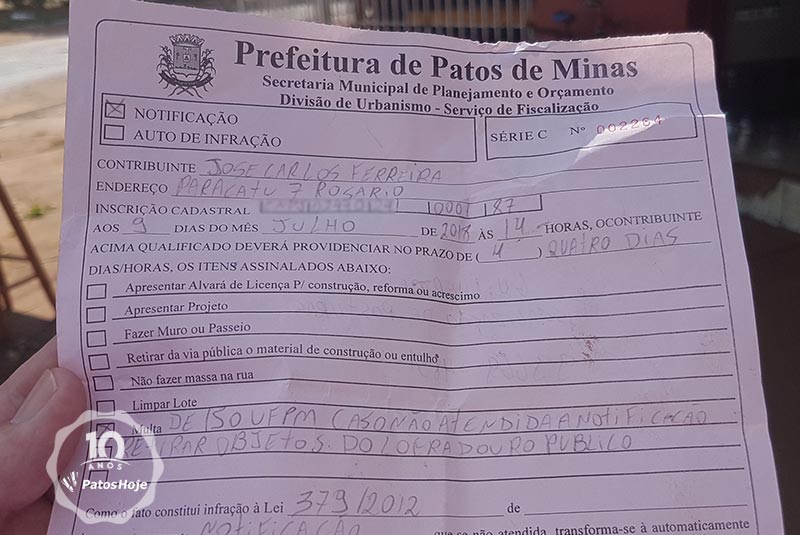 Prefeitura de Patos de Minas
Secretaria Municipal de Planejamento e Orçamento
Divisão de Urbanismo - Serviço de Fiscalização
NOTIFICAÇÃO
AUTO DE INFRAÇÃO
SÉRIE C Nº 002264
CONTRIBUINTE JOSE CARLOS FERREIRA
ENDEREÇO PARACATU 7 ROSARIO
INSCRIÇÃO CADASTRAL 000 187
AOS 9 DIAS DO MÊS JULHO DE 2018 ÀS 14 HORAS, OCONTRIBUINTE
ACIMA QUALIFICADO DEVERÁ PROVIDENCIAR NO PRAZO DE ( 4 ) QUATRO DIAS
DIAS/HORAS, OS ITENS ASSINALADOS ABAIXO:
Apresentar Alvará de Licença P/ construção, reforma ou acrescimo
Apresentar Projeto
Fazer Muro ou Passeio
Retirar da via pública o material de construção ou entulho
Não fazer massa na rua
Limpar Lote
Multa DE 150 UFPM CASO NÃO ATENDIDA A NOTIFICACÃO
RETIRAR OBJETOS DO LOGRADOURO PUBLICO
Como o fato constitui infração à Lei 379/2012 de
NOTIFICAÇÃO que se não atendida, transforma-se à automaticamente
10
ANOS
PatosHoje